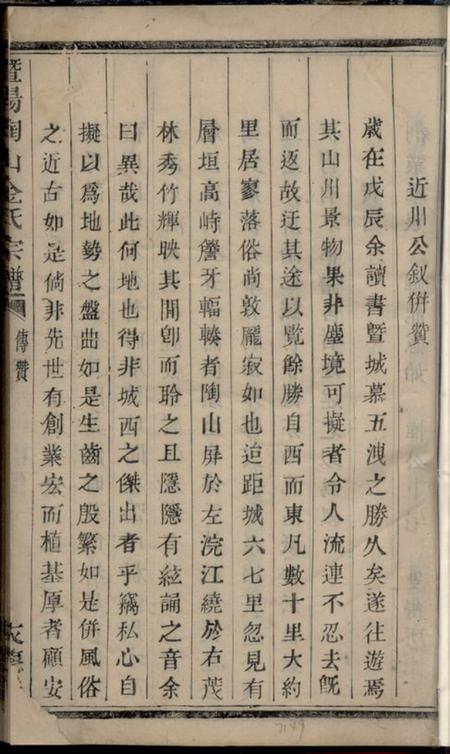 近川公叙併贊
歲在戊辰余讀書暨城慕五洩之勝久矣遂往遊焉
其山川景物果非塵境可擬者令人流連不忍去旣
而返故迂其途以覽餘勝自西而東凡數十里大約
里居寥落俗尚敦龐寂如也迨距城六七里忽見有
層垣高峙簷牙輻輳者陶山屏於左浣江繞於右茂
林秀竹輝映其間卽而聆之且隱隱有絃誦之音余
曰異哉此何地也得非城西之傑出者乎竊私心自
擬以爲地勢之盤曲如是生齒之殷繁如是併風俗
之近古如是倘非先世有創業宏而植基厚者顧安
暨陽陶山金氏宗譜
傳贊